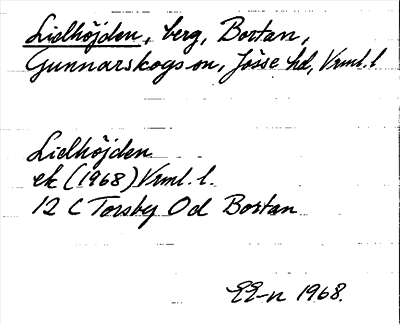 Lidhöjden, berg, Bortan,
Gunnarskogs sn, Jösse hd, Vrml. l
Lidhöjden
ek (1968) Vrml. l.
12 C Torsby 0d Bortan
EE-n 1968.